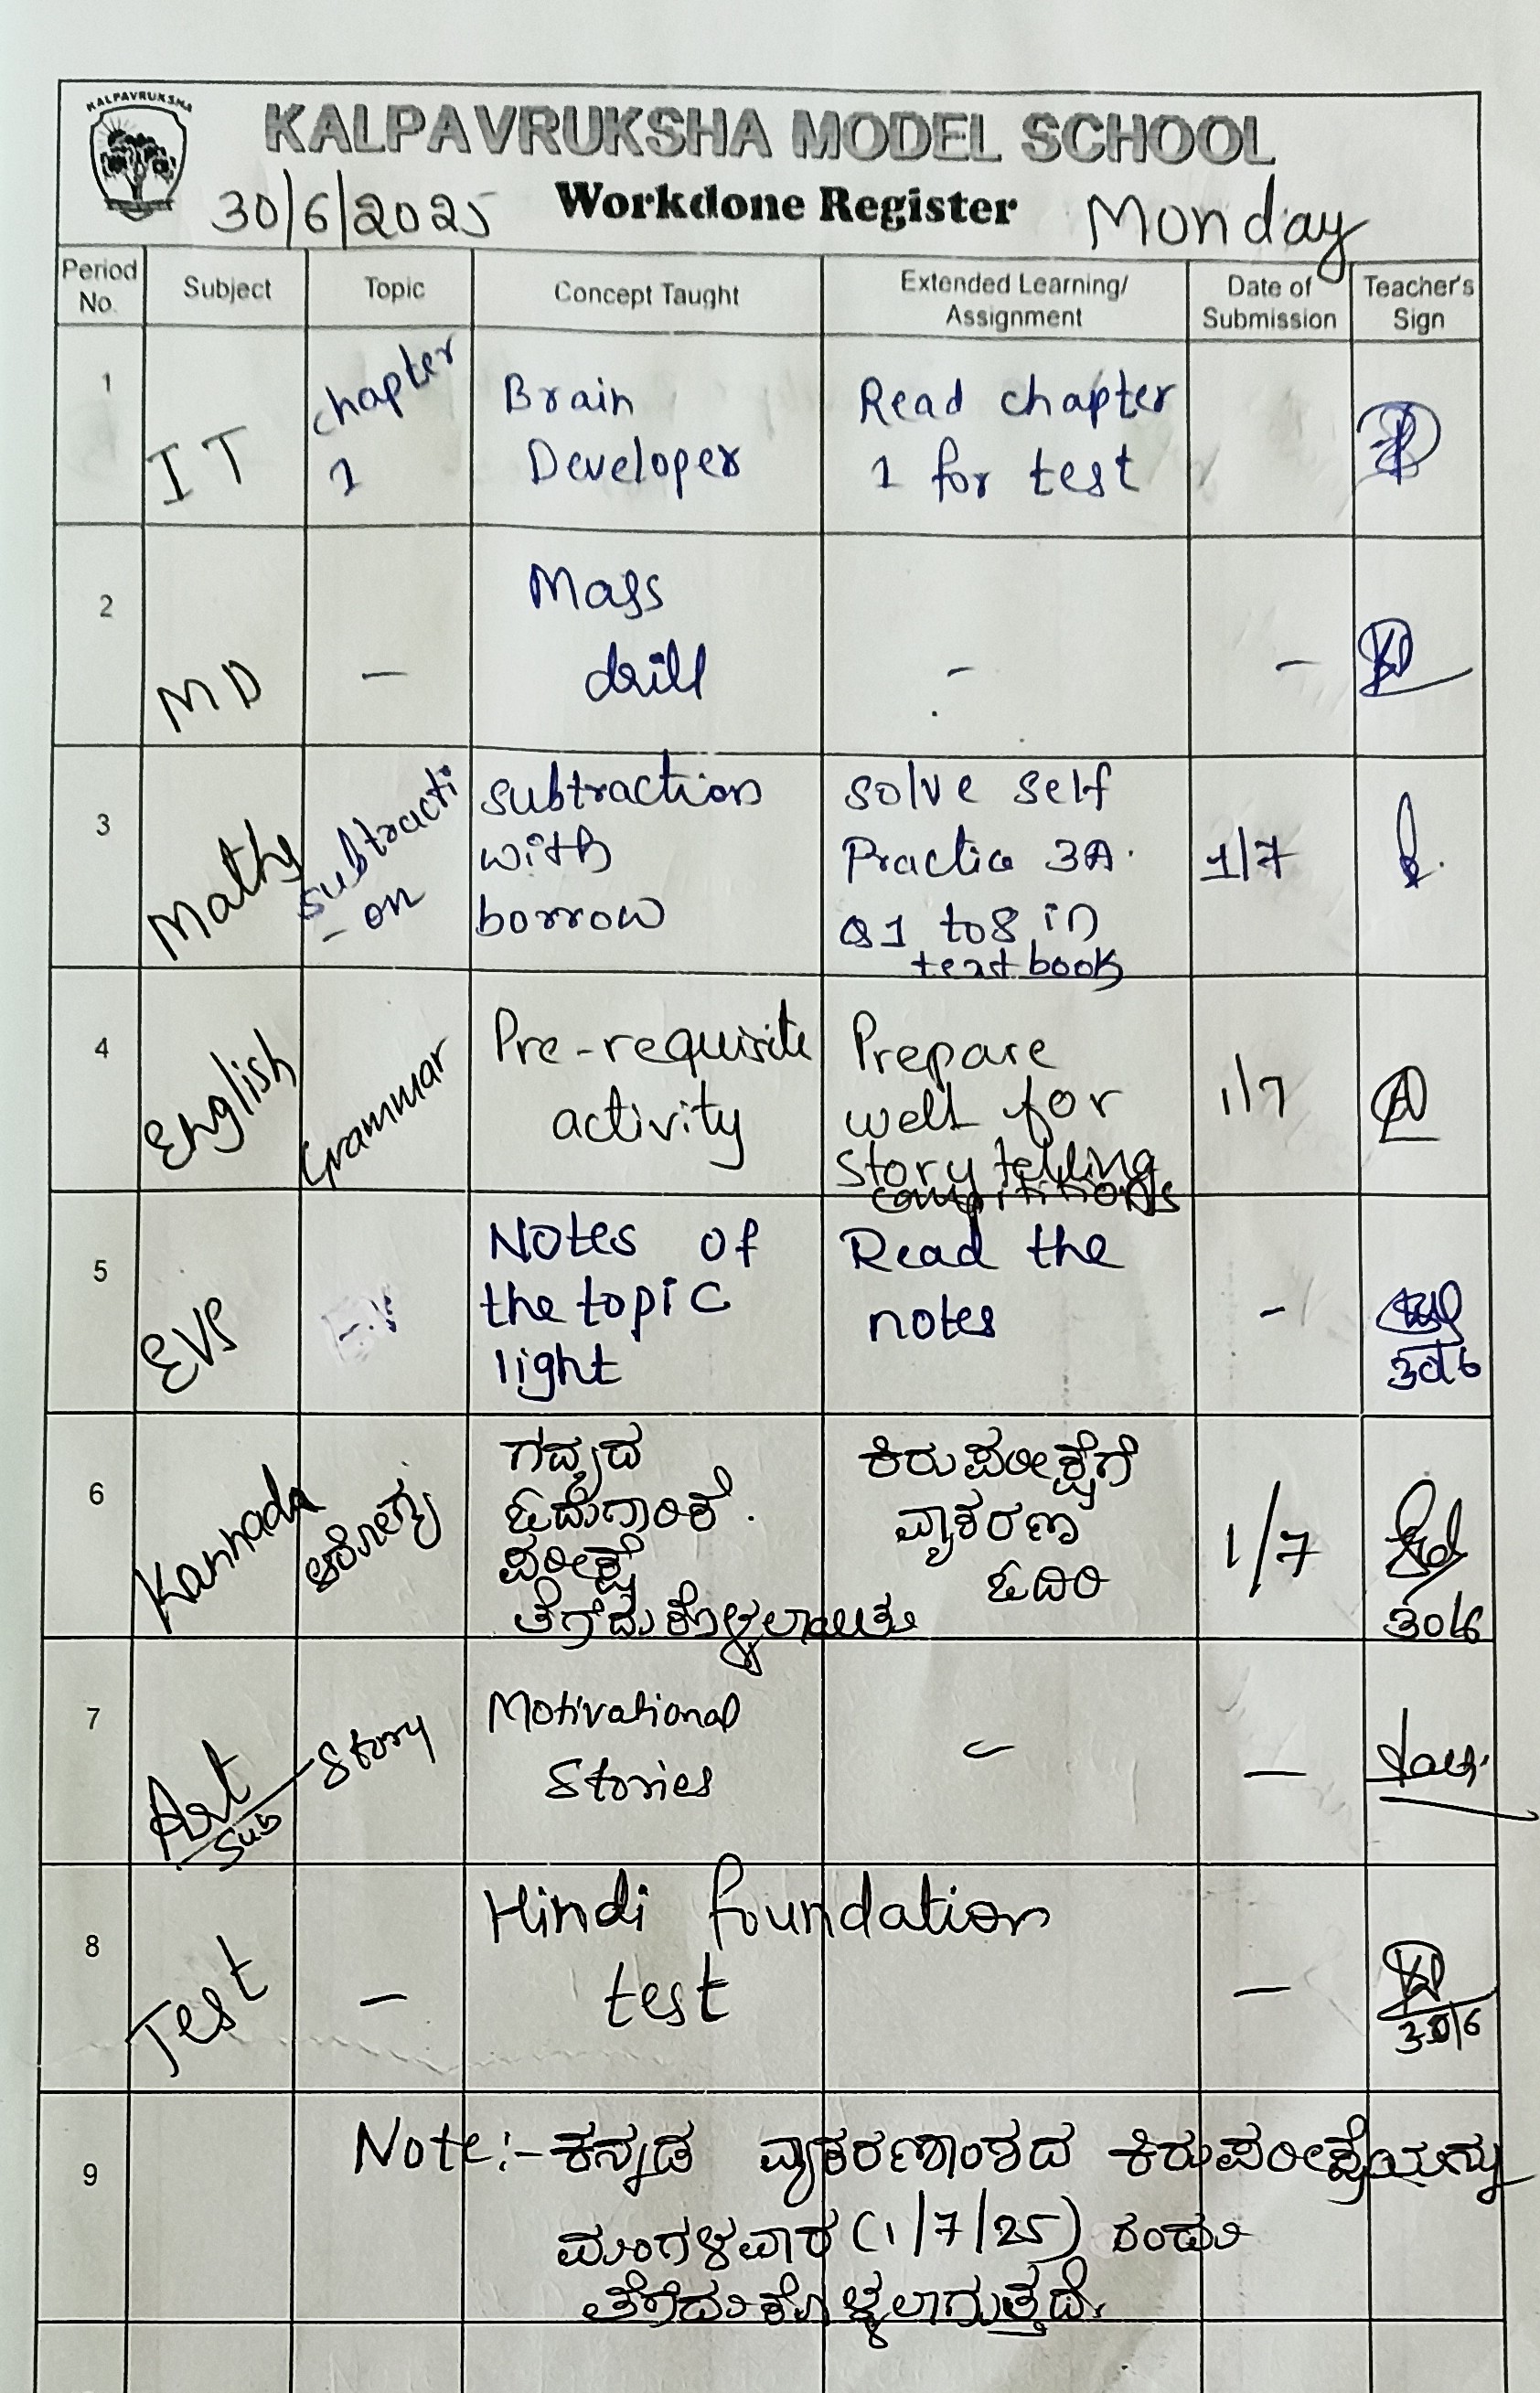 KALPAVRUKSHA
KALPAVRUKSHA MODEL SCHOOL
30/6/2025 Workdone Register Monday
Period No. Subject Topic Concept Taught Extended Learning/ Assignment Date of Submission Teacher's Sign
1 IT chapter 1 Brain Developer Read chapter 1 for test
2 MD - Mass drill - -
3 Maths subtracti-on subtraction with borrow solve self Practice 3A. Q1 to 8 in text book 1/7
4 English Grammar Pre-requisite activity Prepare well for Story telling compititions 1/7
5 EVS - Notes of the topic light Read the notes - 30/6
6 Kannada ಆರೋಗ್ಯ ಗದ್ಯದ ಓದುಗಾರಿಕೆ. ಪರೀಕ್ಷೆ ತೆಗೆದುಕೊಳ್ಳಲಾಯಿತು ಕಿರುಪರೀಕ್ಷೆಗೆ ವ್ಯಾಕರಣ ಓದಿರಿ 1/7 30/6
7 Art Sub Story Motivational Stories - -
8 Test - Hindi foundation test - 30/6
9 Note:- ಕನ್ನಡ ವ್ಯಾಕರಣಾಂಶದ ಕಿರುಪರೀಕ್ಷೆಯನ್ನು
ಮಂಗಳವಾರ (1/7/25) ರಂದು
ತೆಗೆದುಕೊಳ್ಳಲಾಗುತ್ತದೆ.